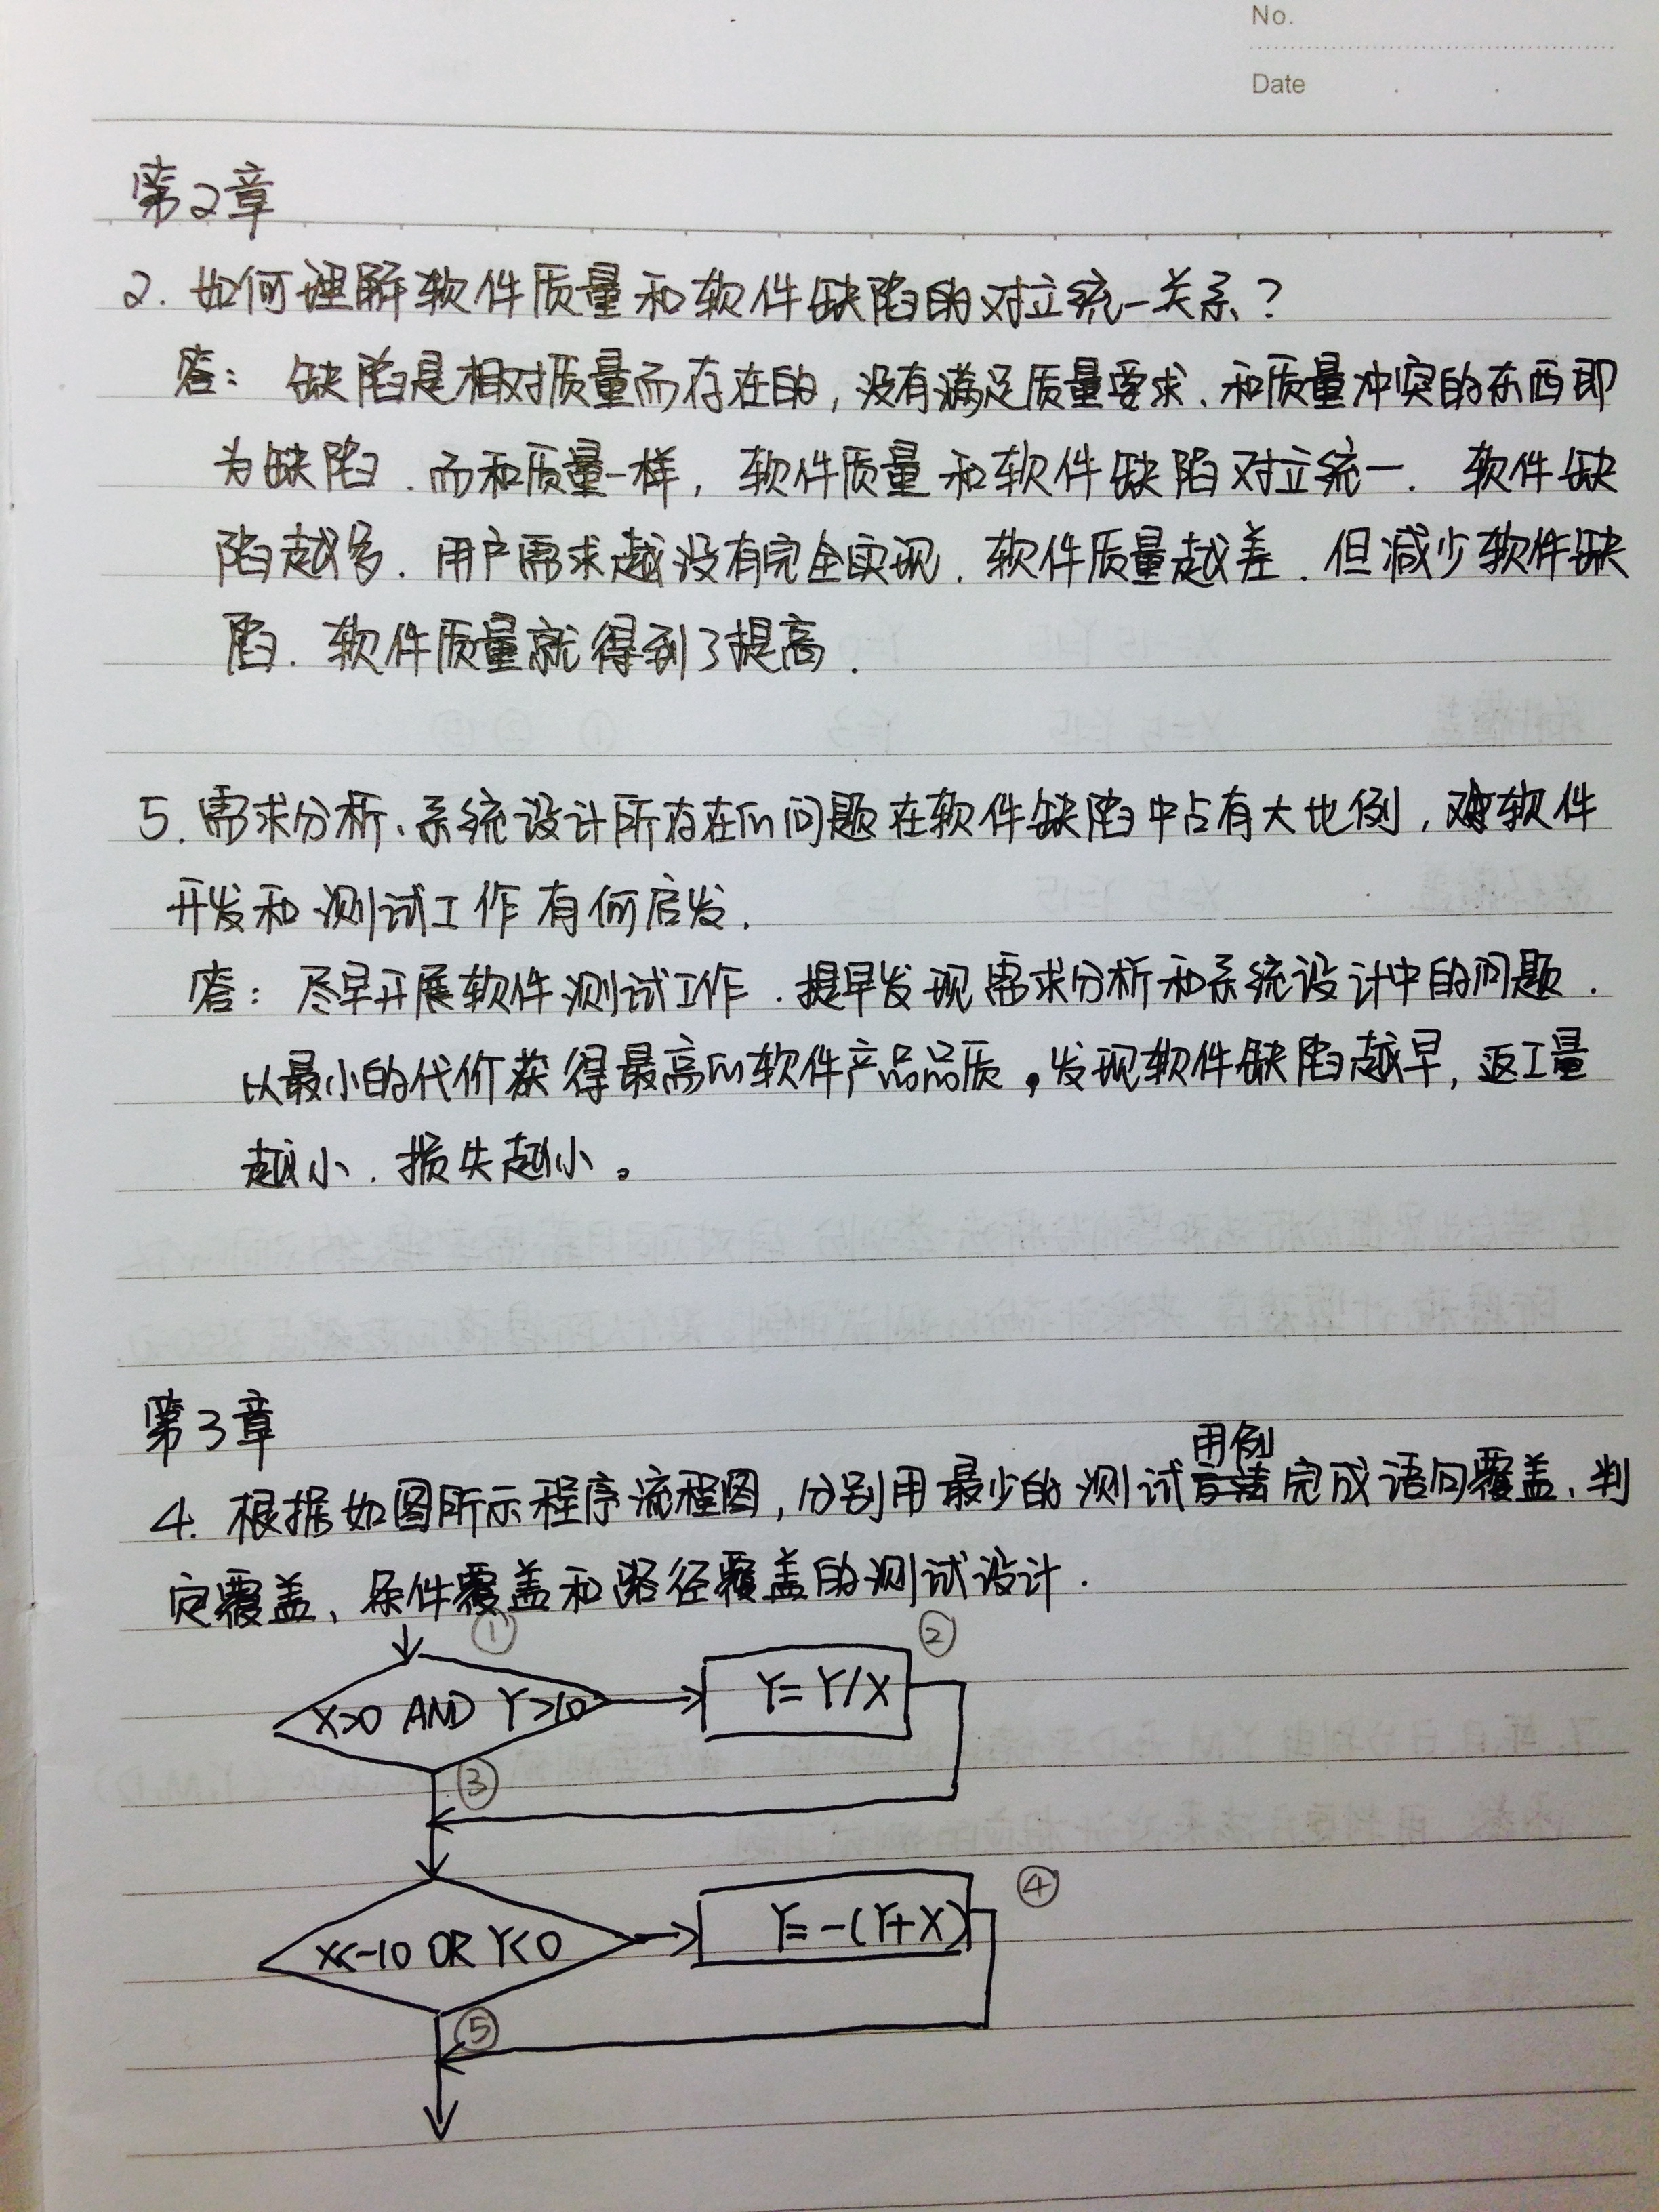 No.
Date
第2章
2. 如何理解软件质量和软件缺陷的对立统一关系?
答: 缺陷是相对质量而存在的, 没有满足质量要求、和质量冲突的东西即
为缺陷. 而和质量一样, 软件质量和软件缺陷对立统一. 软件缺
陷越多. 用户需求越没有完全实现. 软件质量越差. 但减少软件缺
陷. 软件质量就得到了提高.
5. 需求分析、系统设计所存在的问题在软件缺陷中占有大比例, 对软件
开发和测试工作有何启发.
答: 尽早开展软件测试工作. 提早发现需求分析和系统设计中的问题.
以最小的代价获得最高的软件产品品质。发现软件缺陷越早, 返工量
越小. 损失越小。
第3章
用例
4. 根据如图所示程序流程图, 分别用最少的测试方法完成语句覆盖、判
定覆盖、条件覆盖和路径覆盖的测试设计.
① ②
X>0 AND Y>10 Y=Y/X
③
④
X<-10 OR Y<0 Y=-(Y+X)
⑤